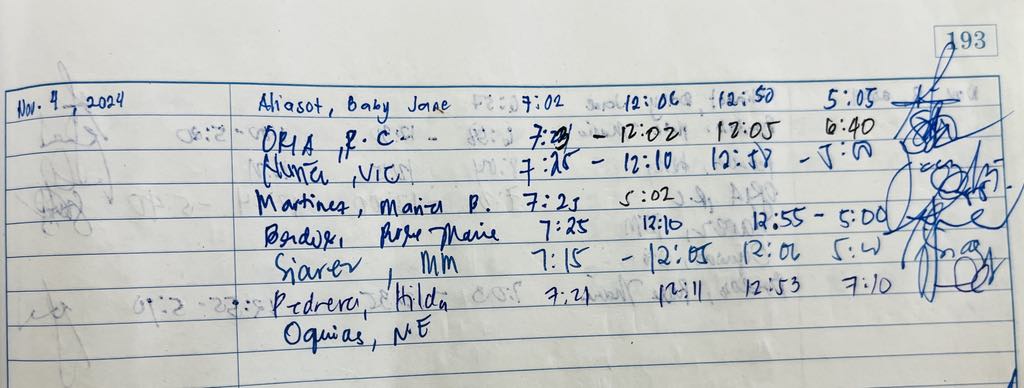 193
Nov. 4, 2024 Aliasot, Baby Jane 7:02 12:06 12:50 5:05
ORIA, R.C. 7:23 - 12:02 12:05 6:40
VIC 7:25 - 12:10 12:58 - 5:00
Martinez, Maria B. 7:25 5:02
Rose Marie 7:25 12:10 12:55 - 5:00
Siarez, MM 7:15 - 12:05 12:06
Pedrera, Hilda 7:21 12:11 12:53 7:10
Oquias, N.E